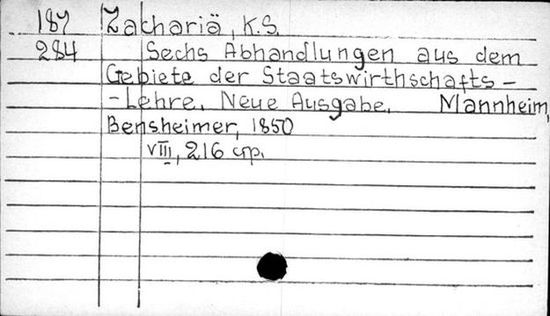 187 Zachariä, K.S.
284 Sechs Abhandlungen aus dem
Gebiete der Staatswirthschafts-
-Lehre. Neue Ausgabe. Mannheim,
Bensheimer, 1850
VIII, 216 стр.